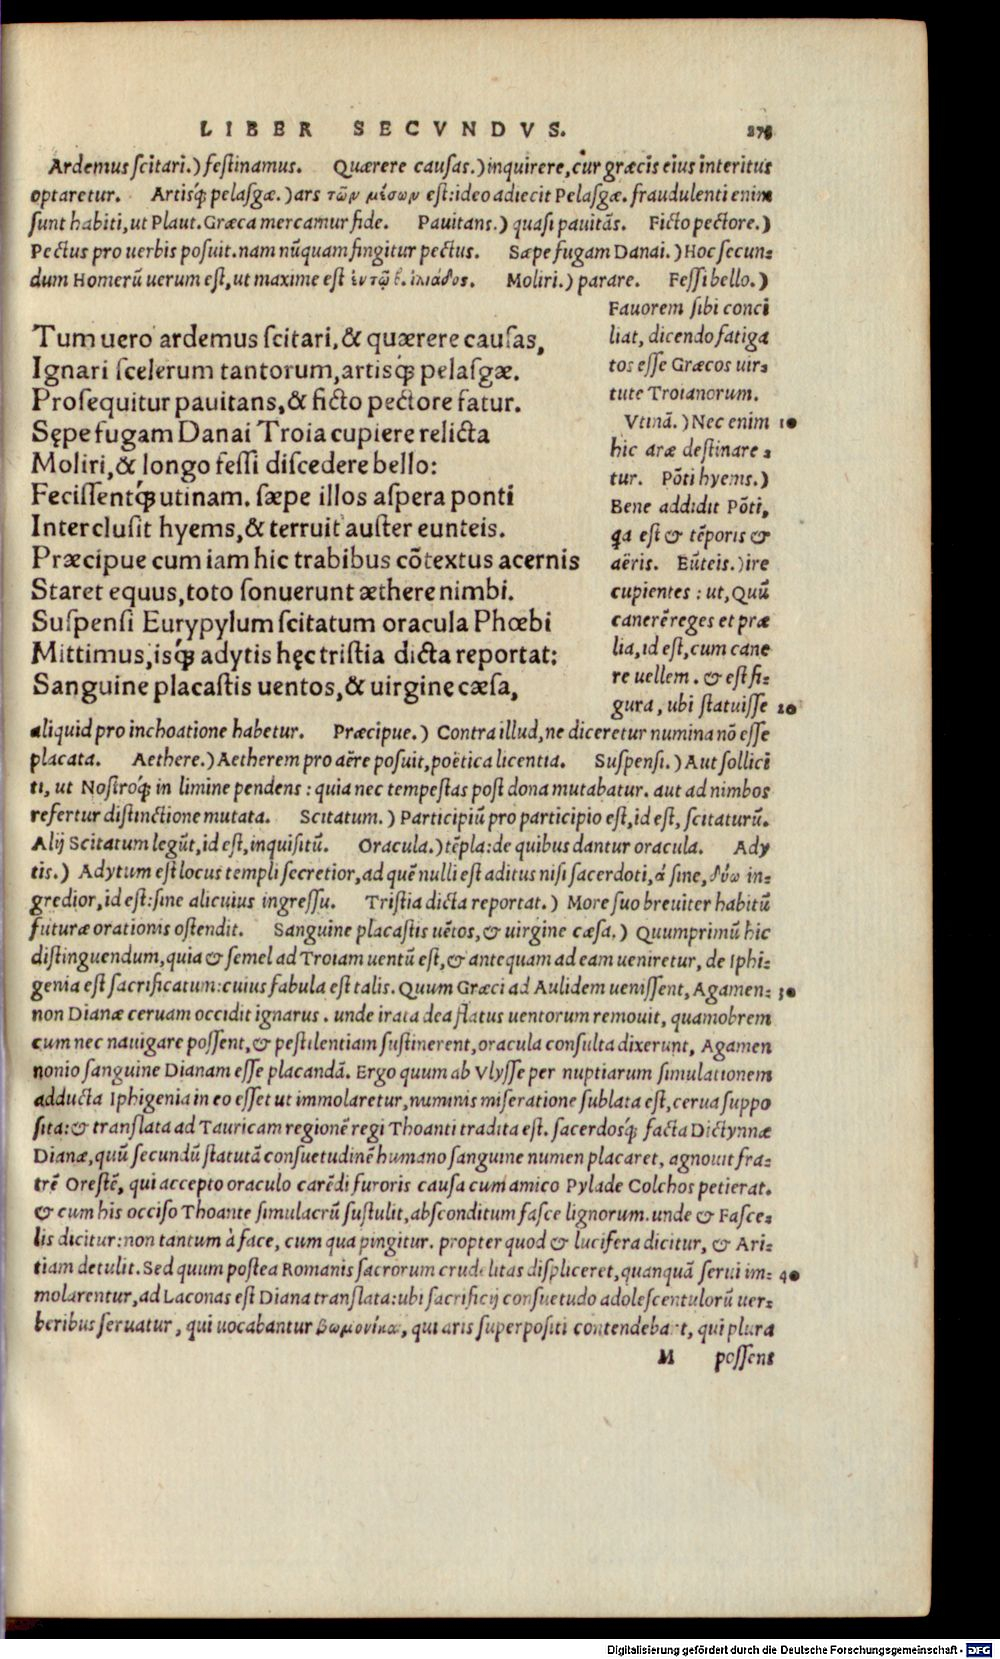 LIBER SECVNDVS. 276
Ardemus scitari.) festinamus. Quærere causas.) inquirere, cur græcis eius interitus
optaretur. Artisq́; pelasgæ.) ars τῶν μέσων est: ideo adiecit Pelasgæ. fraudulenti enim
sunt habiti, ut Plaut. Græca mercamur fide. Pauitans.) quasi pauitãs. Ficto pectore.)
Pectus pro uerbis posuit. nam nũquam fingitur pectus. Sæpe fugam Danai.) Hoc secun-
dum Homerũ uerum est, ut maxime est ἐν τῷ β. ἰλιάδος. Moliri.) parare. Fessi bello.)
Tum uero ardemus scitari, & quærere causas,
Ignari scelerum tantorum, artisq́; pelasgæ.
Prosequitur pauitans, & ficto pectore fatur.
Sępe fugam Danai Troia cupiere relicta
Moliri, & longo fessi discedere bello:
Fecissentq́; utinam. sæpe illos aspera ponti
Interclusit hyems, & terruit auster eunteis.
Præcipue cum iam hic trabibus cõtextus acernis
Staret equus, toto sonuerunt æthere nimbi.
Suspensi Eurypylum scitatum oracula Phœbi
Mittimus, isq́; adytis hęc tristia dicta reportat:
Sanguine placastis uentos, & uirgine cæsa,
Fauorem sibi conci
liat, dicendo fatiga
tos esse Græcos uir-
tute Troianorum.
Vtinã.) Nec enim 10
hic aræ destinare-
tur. Põti hyems.)
Bene addidit Põti,
ꝗa est & tẽporis &
aëris. Eũteis.) ire
cupientes: ut, Quũ
canerẽ reges et præ
lia, id est, cum cane
re uellem. & est fi-
gura, ubi statuisse 20
aliquid pro inchoatione habetur. Præcipue.) Contra illud, ne diceretur numina nõ esse
placata. Aethere.) Aetherem pro aëre posuit, poëtica licentia. Suspensi.) Aut sollici
ti, ut Nostroq́; in limine pendens: quia nec tempestas post dona mutabatur. aut ad nimbos
refertur distinctione mutata. Scitatum.) Participiũ pro participio est, id est, scitaturũ.
Alij Scitatum legũt, id est, inquisitũ. Oracula.) tẽpla: de quibus dantur oracula. Ady
tis.) Adytum est locus templi secretior, ad quẽ nulli est aditus nisi sacerdoti, ἀ sine, δύω in-
gredior, id est: sine alicuius ingressu. Tristia dicta reportat.) More suo breuiter habitũ
futuræ orationis ostendit. Sanguine placastis uẽtos, & uirgine cæsa.) Quumprimũ hic
distinguendum, quia & semel ad Troiam uentũ est, & antequam ad eam ueniretur, de Iphi-
genia est sacrificatum: cuius fabula est talis. Quum Græci ad Aulidem uenissent, Agamem- 30
non Dianæ ceruam occidit ignarus. unde irata dea flatus uentorum remouit, quamobrem
cum nec nauigare possent, & pestilentiam sustinerent, oracula consulta dixerunt, Agamen
nonio sanguine Dianam esse placandã. Ergo quum ab Vlysse per nuptiarum simulationem
adducta Iphigenia in eo esset ut immolaretur, numinis miseratione sublata est, cerua suppo
sita: & translata ad Tauricam regionẽ regi Thoanti tradita est. sacerdosq́; facta Dictynnæ
Dianæ, quũ secundũ statutã consuetudinẽ humano sanguine numen placaret, agnouit fra-
trẽ Orestẽ, qui accepto oraculo carẽdi furoris causa cum amico Pylade Colchos petierat.
& cum his occiso Thoante simulacrũ sustulit, absconditum fasce lignorum. unde & Fasce-
lis dicitur: non tantum à face, cum qua pingitur. propter quod & lucifera dicitur, & Ari-
tiam detulit. Sed quum postea Romanis sacrorum crudelitas displiceret, quanquã serui im- 40
molarentur, ad Laconas est Diana translata: ubi sacrificij consuetudo adolescentulorũ uer-
beribus seruatur, qui uocabantur βωμονίκαι, qui aris superpositi contendebant, qui plura
M possent
Digitalisierung gefördert durch die Deutsche Forschungsgemeinschaft - DFG